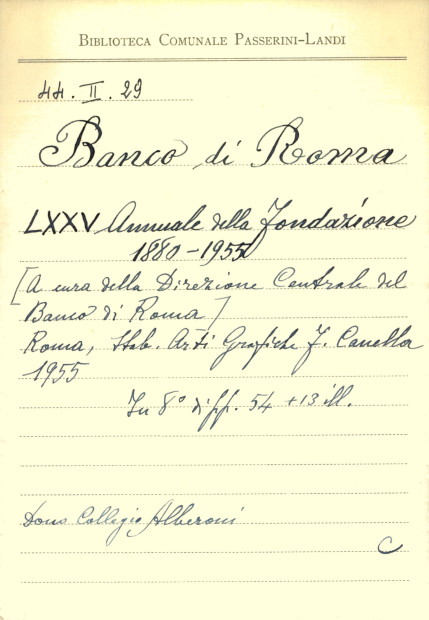 BIBLIOTECA COMUNALE PASSERINI-LANDI
44. II. 29
Banco di Roma
LXXV Annuale della Fondazione
1880-1955
[A cura della Direzione Centrale del
Banco di Roma]
Roma, Stab. Arti Grafiche F. Canella
1955
In 8° di pp. 54 + 13 ill.
Dono Collegio Alberoni
C